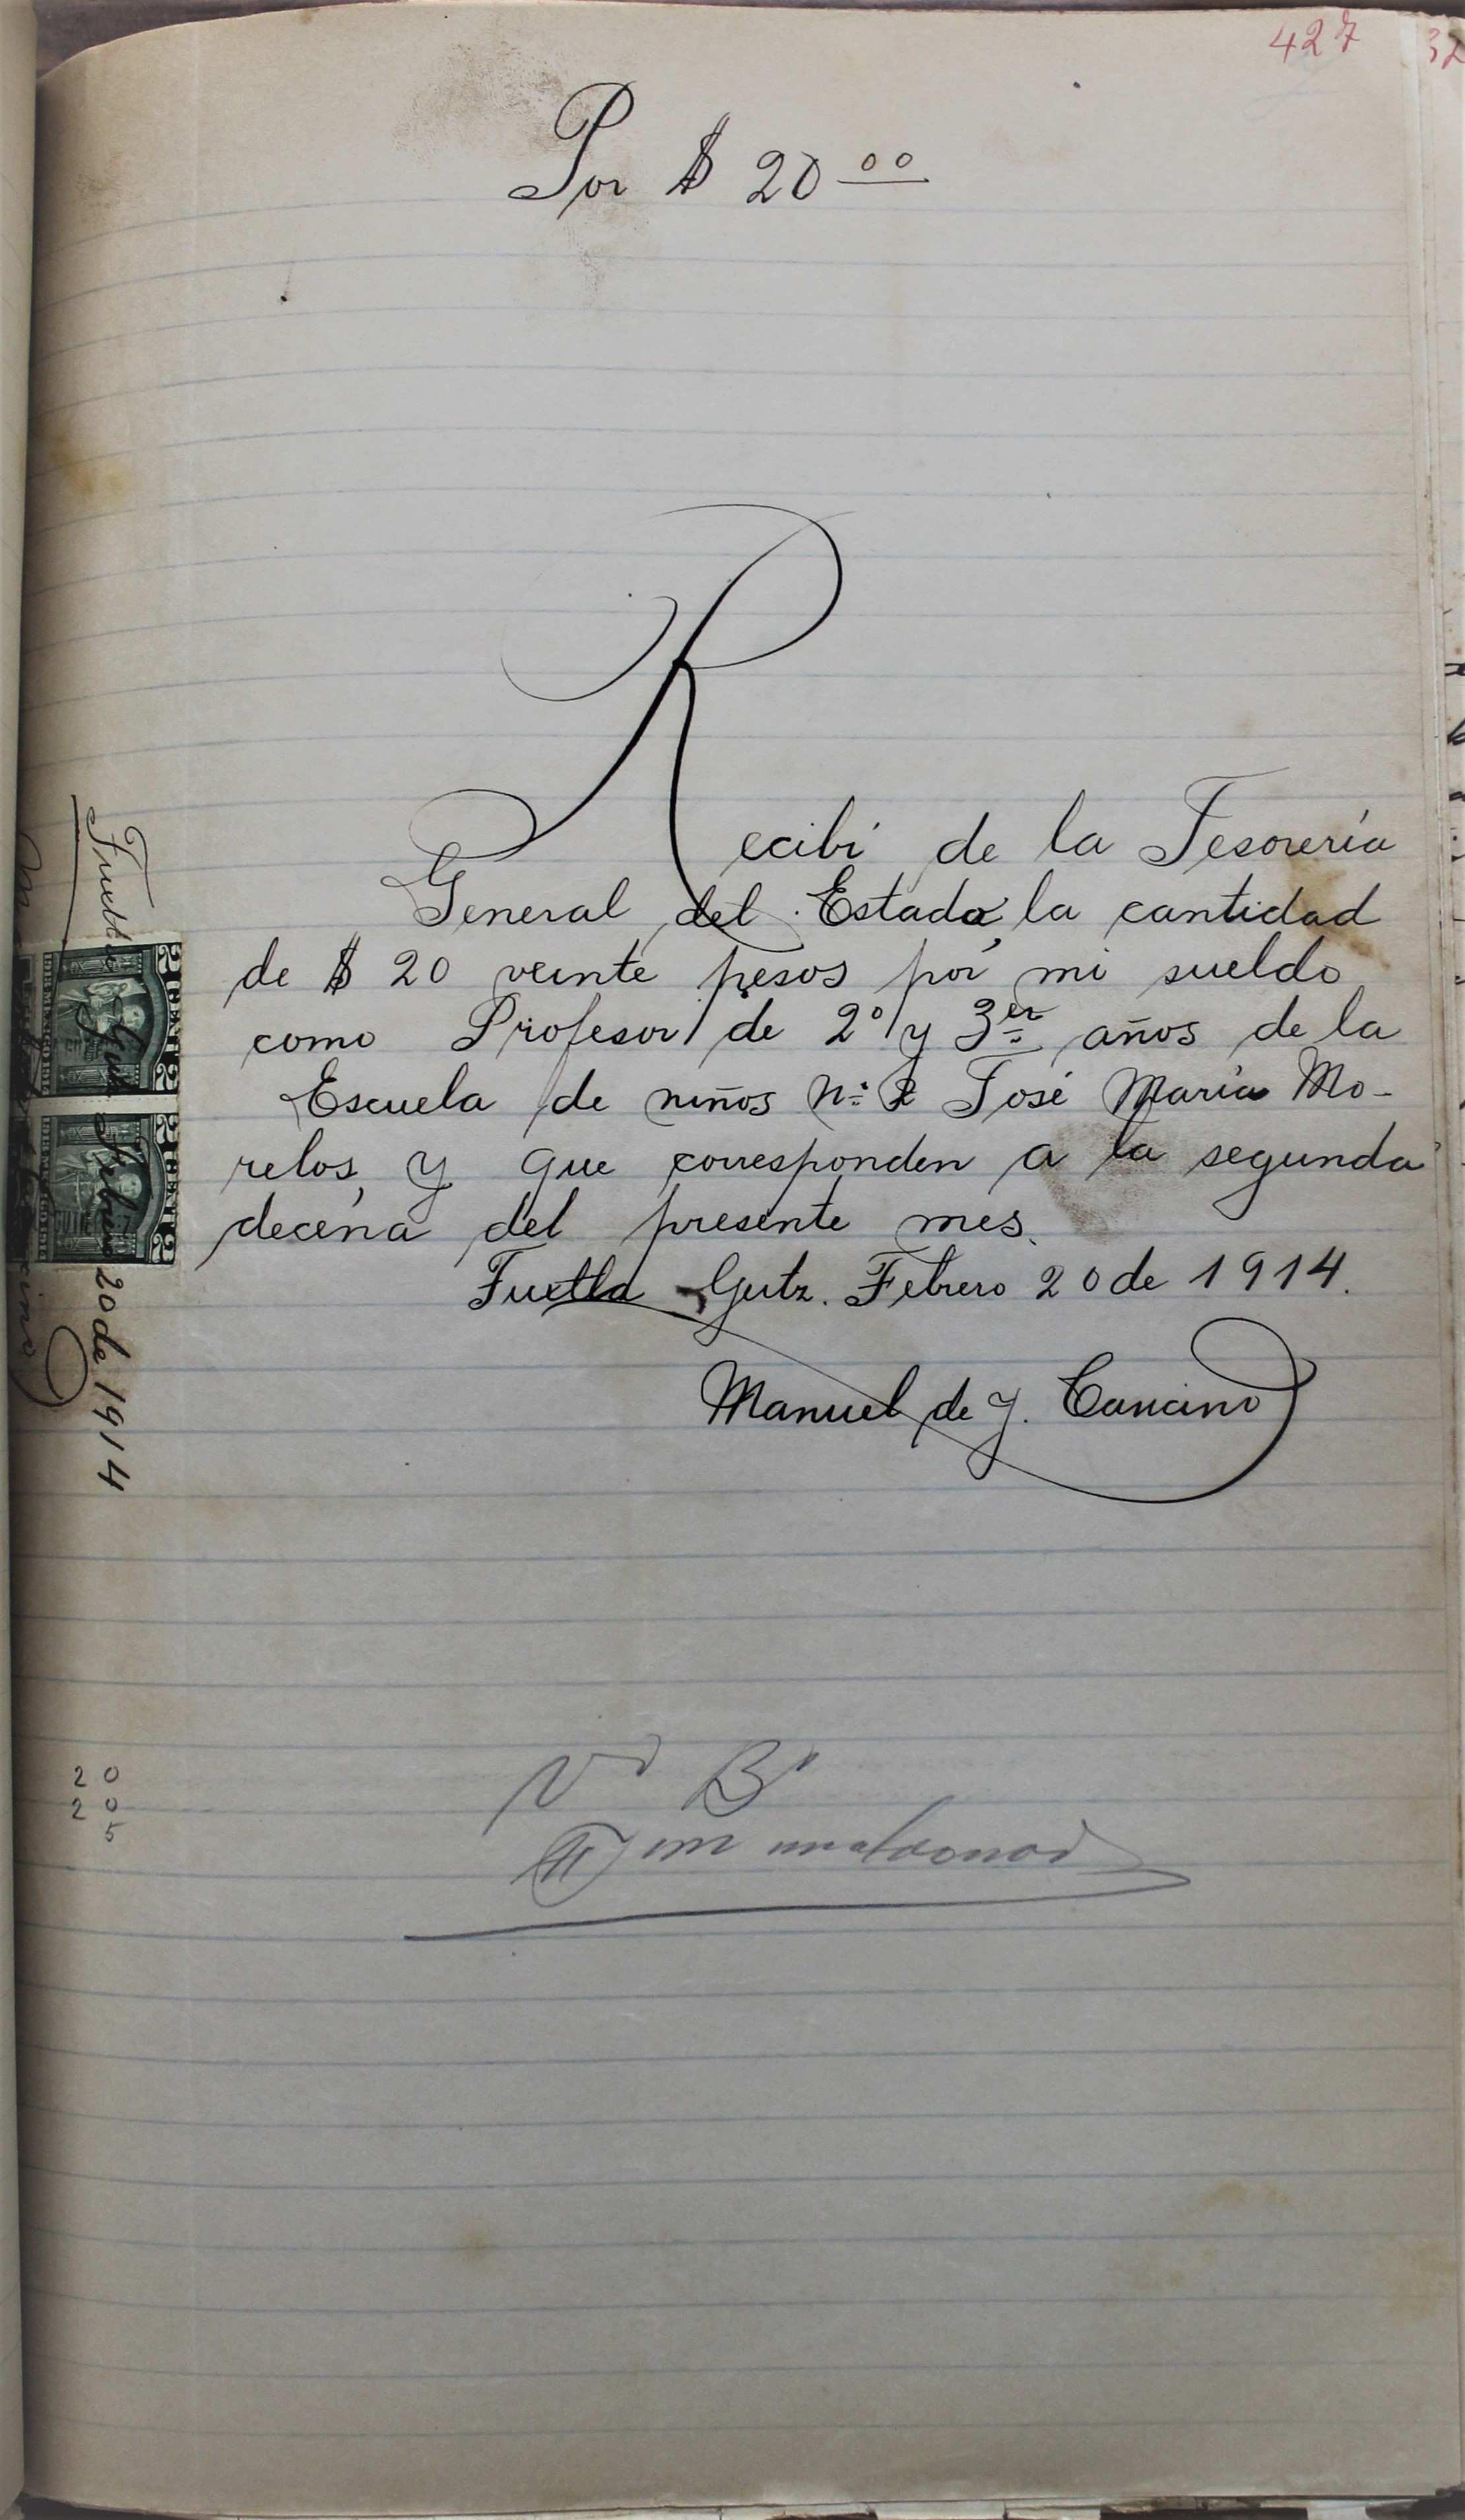 427
Por $ 20 00
Recibí de la Tesorería
General del Estado, la cantidad
de $ 20 veinte pesos por mi sueldo
como Profesor de 2º y 3er años de la
Escuela de niños Nº 2 José María Mo-
relos, y que corresponden a la segunda
decena del presente mes.
Tuxtla Gutz. Febrero 20 de 1914.
Manuel de J. Cancino
Tuxtla Gutz. Febrero 20 de 1914
2 CENTS
2 CENTS
20
20
5
Vº Bº